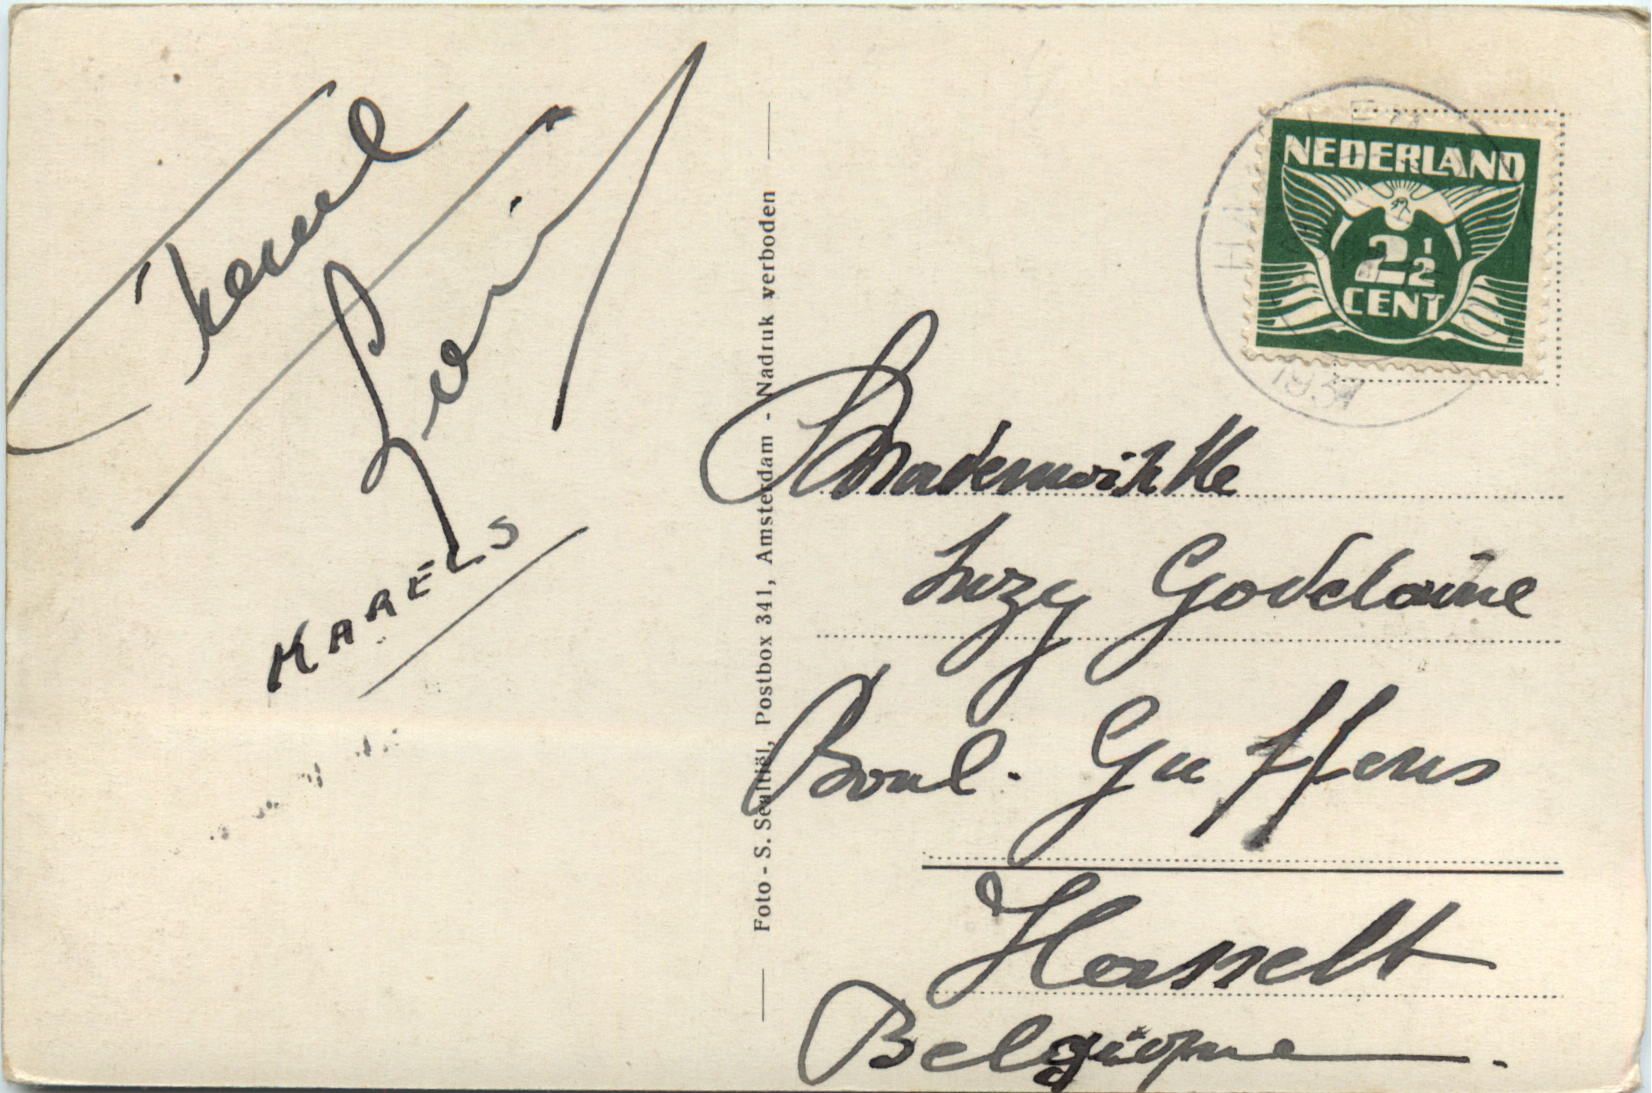 KARELS
Foto - S. Scaltiël, Postbox 341, Amsterdam - Nadruk verboden
NEDERLAND
2½
CENT
Mademoiselle
Suzy Godelaine
Boul. Guffens
Hasselt
Belgique.